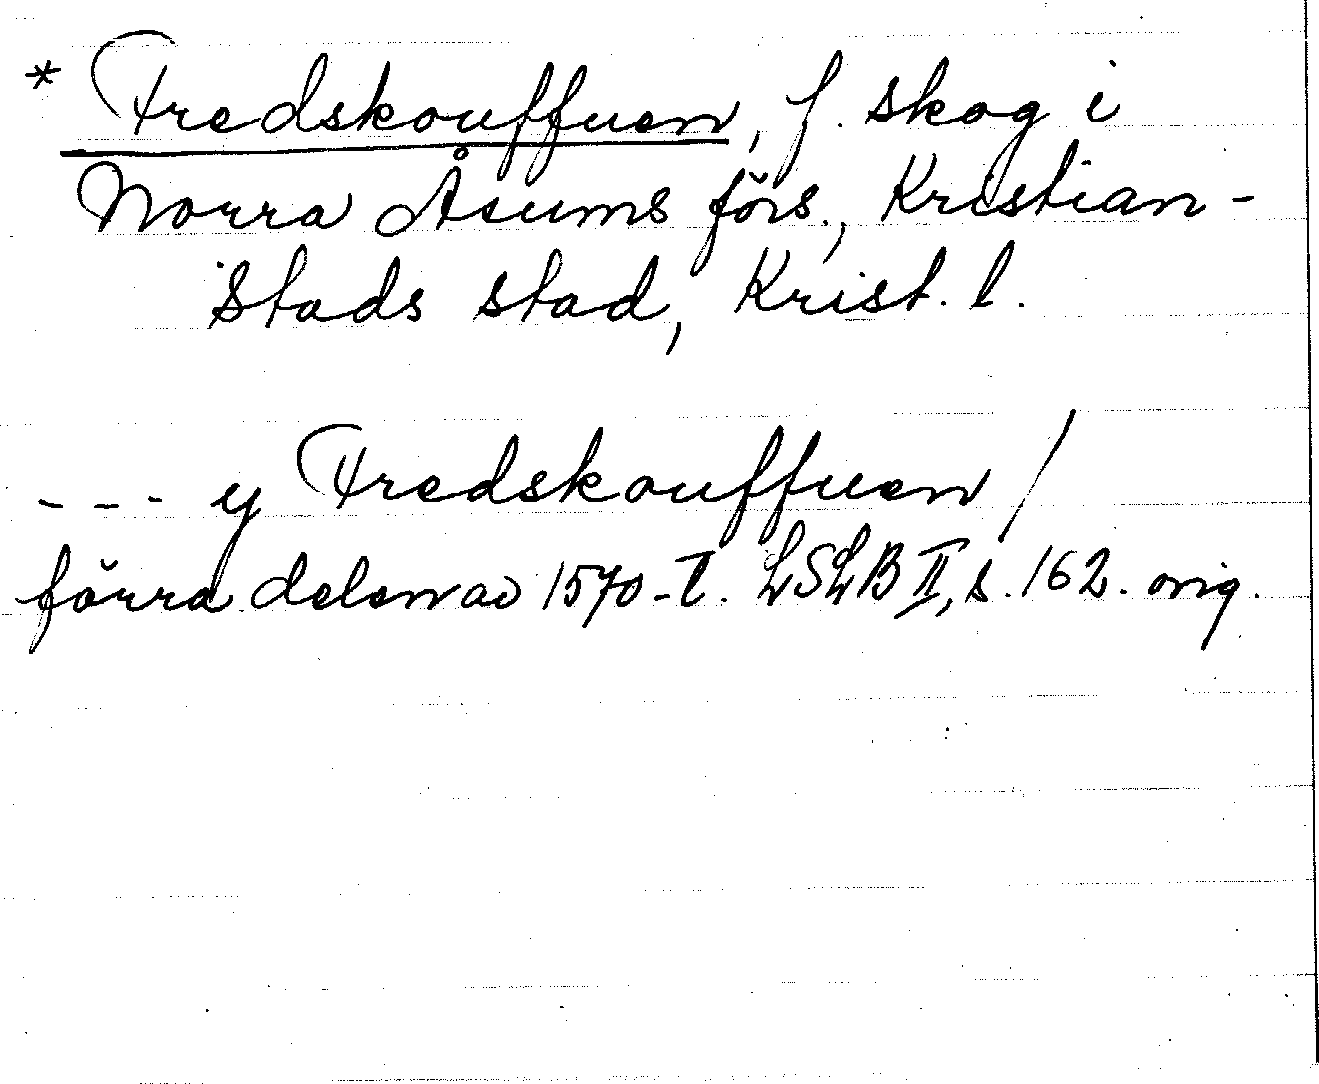 * Fredskouffuen, f. skog i
Norra Åsums förs., Kristian-
stads stad, Krist. l.
- - - y Fredskouffuen /
förra delen av 1570-t. LSLB II, s. 162. orig.